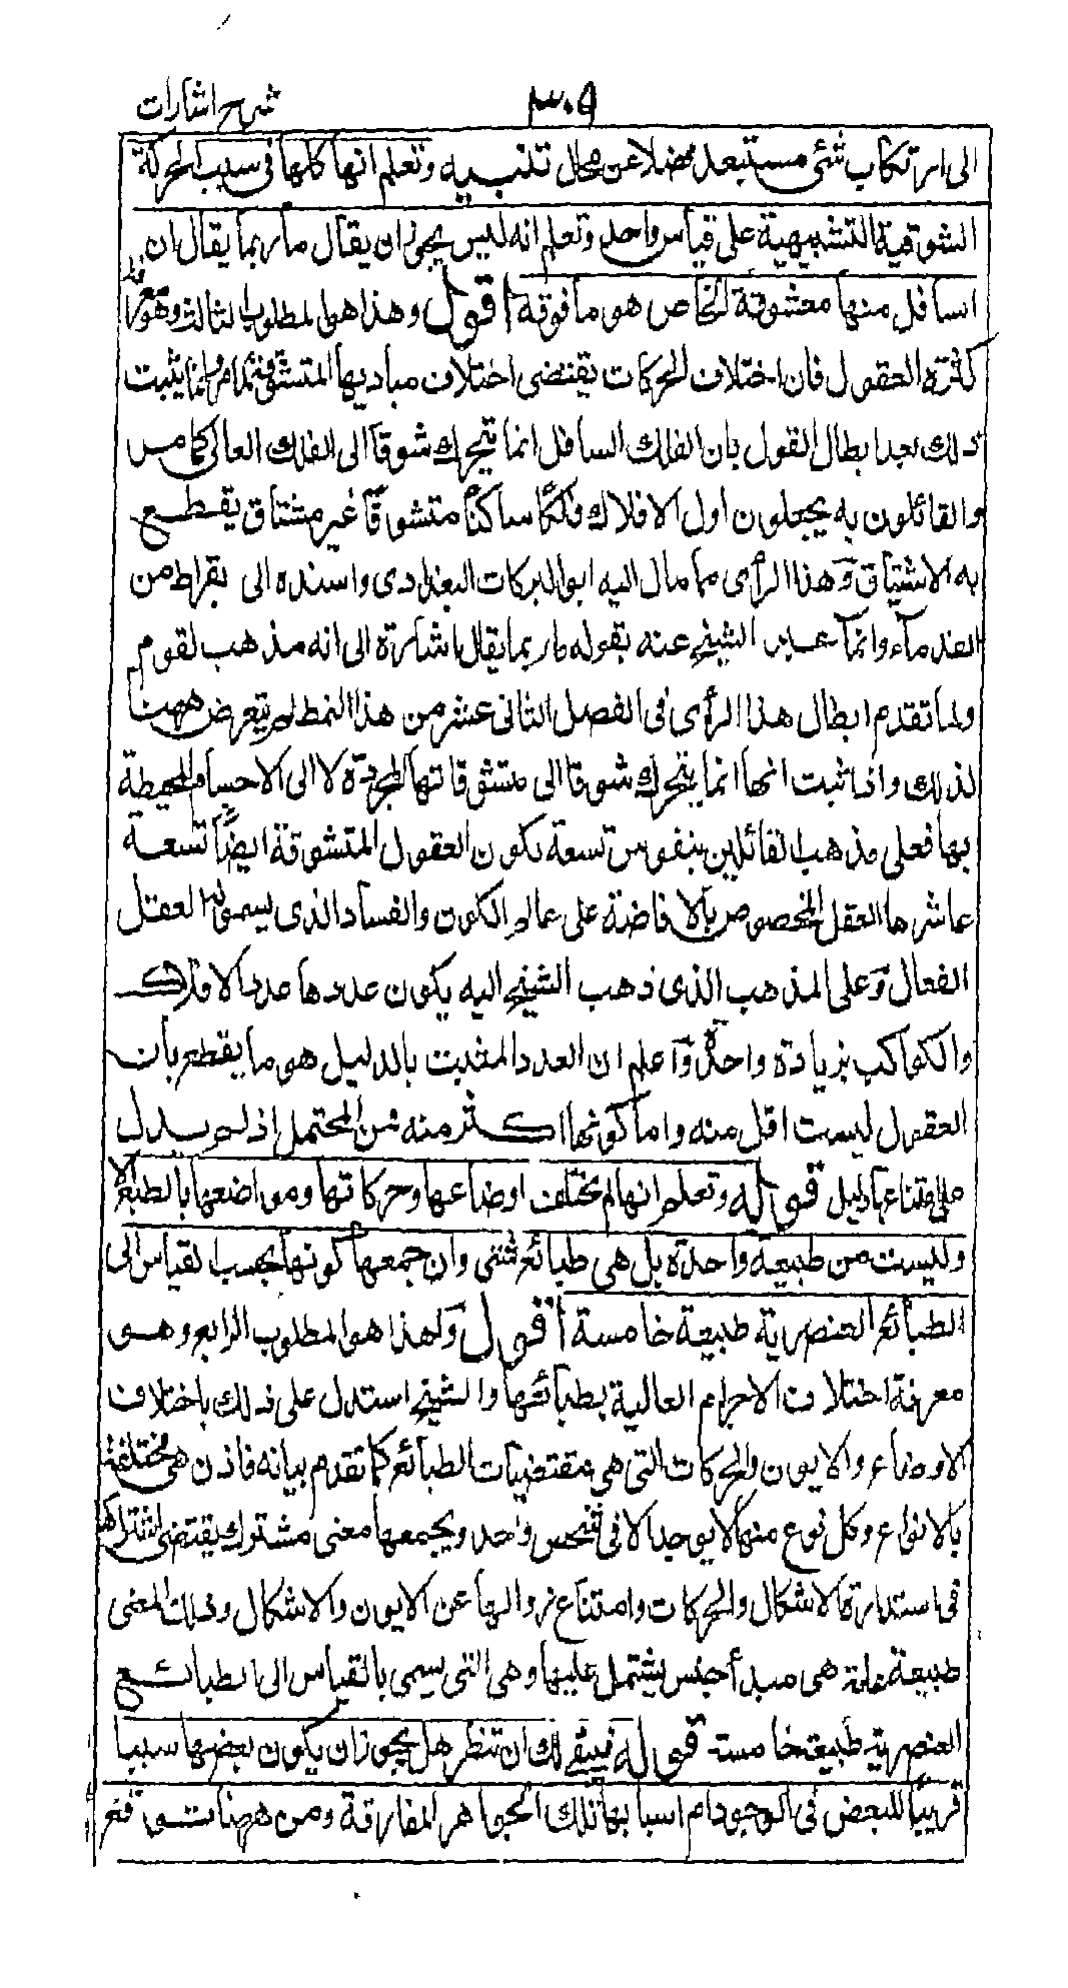 ٣٠٩ شرح اشارات
الى ارتكاب شئ مستبعد فضلا عن محال تنبيه وتعلم انها كلها فى سبب الحركة
الشوقية التشبيهية على قياس واحد وتعلم انه ليس يجوز ان يقال ما ربما يقال ان
السافل منها معشوقه الخاص هو ما فوقه اقول وهذا هو المطلوب الثالث وهو معرفة
كثرة العقول فان اختلاف الحركات يقتضى اختلاف مباديها المتشوقة كما مر وانما يثبت
ذلك بعد ابطال القول بان الفلك السافل انما يتحرك شوقا الى الفلك العالى كما مر
والقائلون به يجعلون اول الافلاك فلكا ساكنا متشوقا غير مشتاق يقطع
به الاشتياق وهذا الرأى مما مال اليه ابو البركات البغدادى واسنده الى بقراط من
القدماء وانما عبر الشيخ عنه بقوله ما ربما يقال اشارة الى انه مذهب لقوم
ولما تقدم ابطال هذا الرأى فى الفصل الثانى عشر من هذا النمط لم يتعرض ههنا
لذلك واذا ثبت انها انما يتحرك شوقا الى متشوقاتها المجردة لا الى الاجسام المحيطة
بها فعلى مذهب القائلين بنفوس تسعة يكون العقول المتشوقة ايضا تسعة
عاشرها العقل المخصوص بالافاضة على عالم الكون والفساد الذى يسمونه العقل
الفعال وعلى المذهب الذى ذهب الشيخ اليه يكون عددها عدد الافلاك
والكواكب بزيادة واحدة واعلم ان العدد المثبت بالدليل هو ما يقطع بان
العقول ليست اقل منه واما كونها اكثر منه فمن المحتمل اذ لم يدل
على امتناعها دليل قوله وتعلم انها لم تختلف اوضاعها وحركاتها ومواضعها بالطبع الا
وليست من طبيعة واحدة بل هى طبائع شتى وان جمعها كونها بحسب القياس الى
الطبائع العنصرية طبيعة خامسة اقول وهذا هو المطلوب الرابع وهو
معرفة اختلاف الاجرام العالية بطبائعها والشيخ استدل على ذلك باختلاف
الاوضاع والايون والحركات التى هى مقتضيات الطبائع كما تقدم بيانه فاذن هى مختلفة
بالانواع وكل نوع منها لا يوجد الا فى شخص واحد ويجمعها معنى مشترك يقتضى اشتراكها
فى استدارة الاشكال والحركات وامتناع زوالها عن الايون والاشكال وذلك المعنى
طبيعة عامة هى مبدأ جنس يشتمل عليها وهى التى يسمى بالقياس الى الطبائع
العنصرية طبيعة خامسة قوله فبقى لك ان تنظر هل يجوز ان يكون بعضها سببا
قريبا للبعض فى الوجود ام اسبابها تلك الجواهر المفارقة ومن ههنا تتوقع